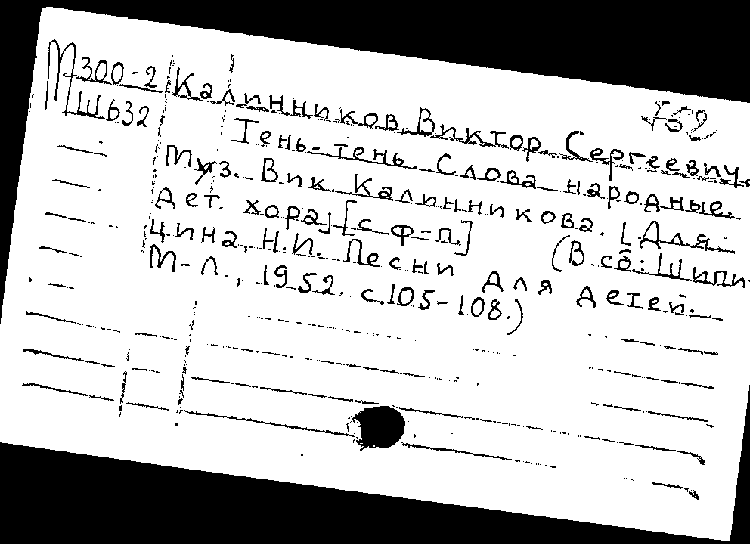 М300-2 Калинников, Виктор Сергеевич.
Ш632
752
Тень-тень. Слова народные.
Муз. Вик Калинникова. [Для
дет. хора] [с ф-п.] (В сб: Шипи-
цина, Н.И. Песни для детей.
М-Л., 1952. с.105-108.)